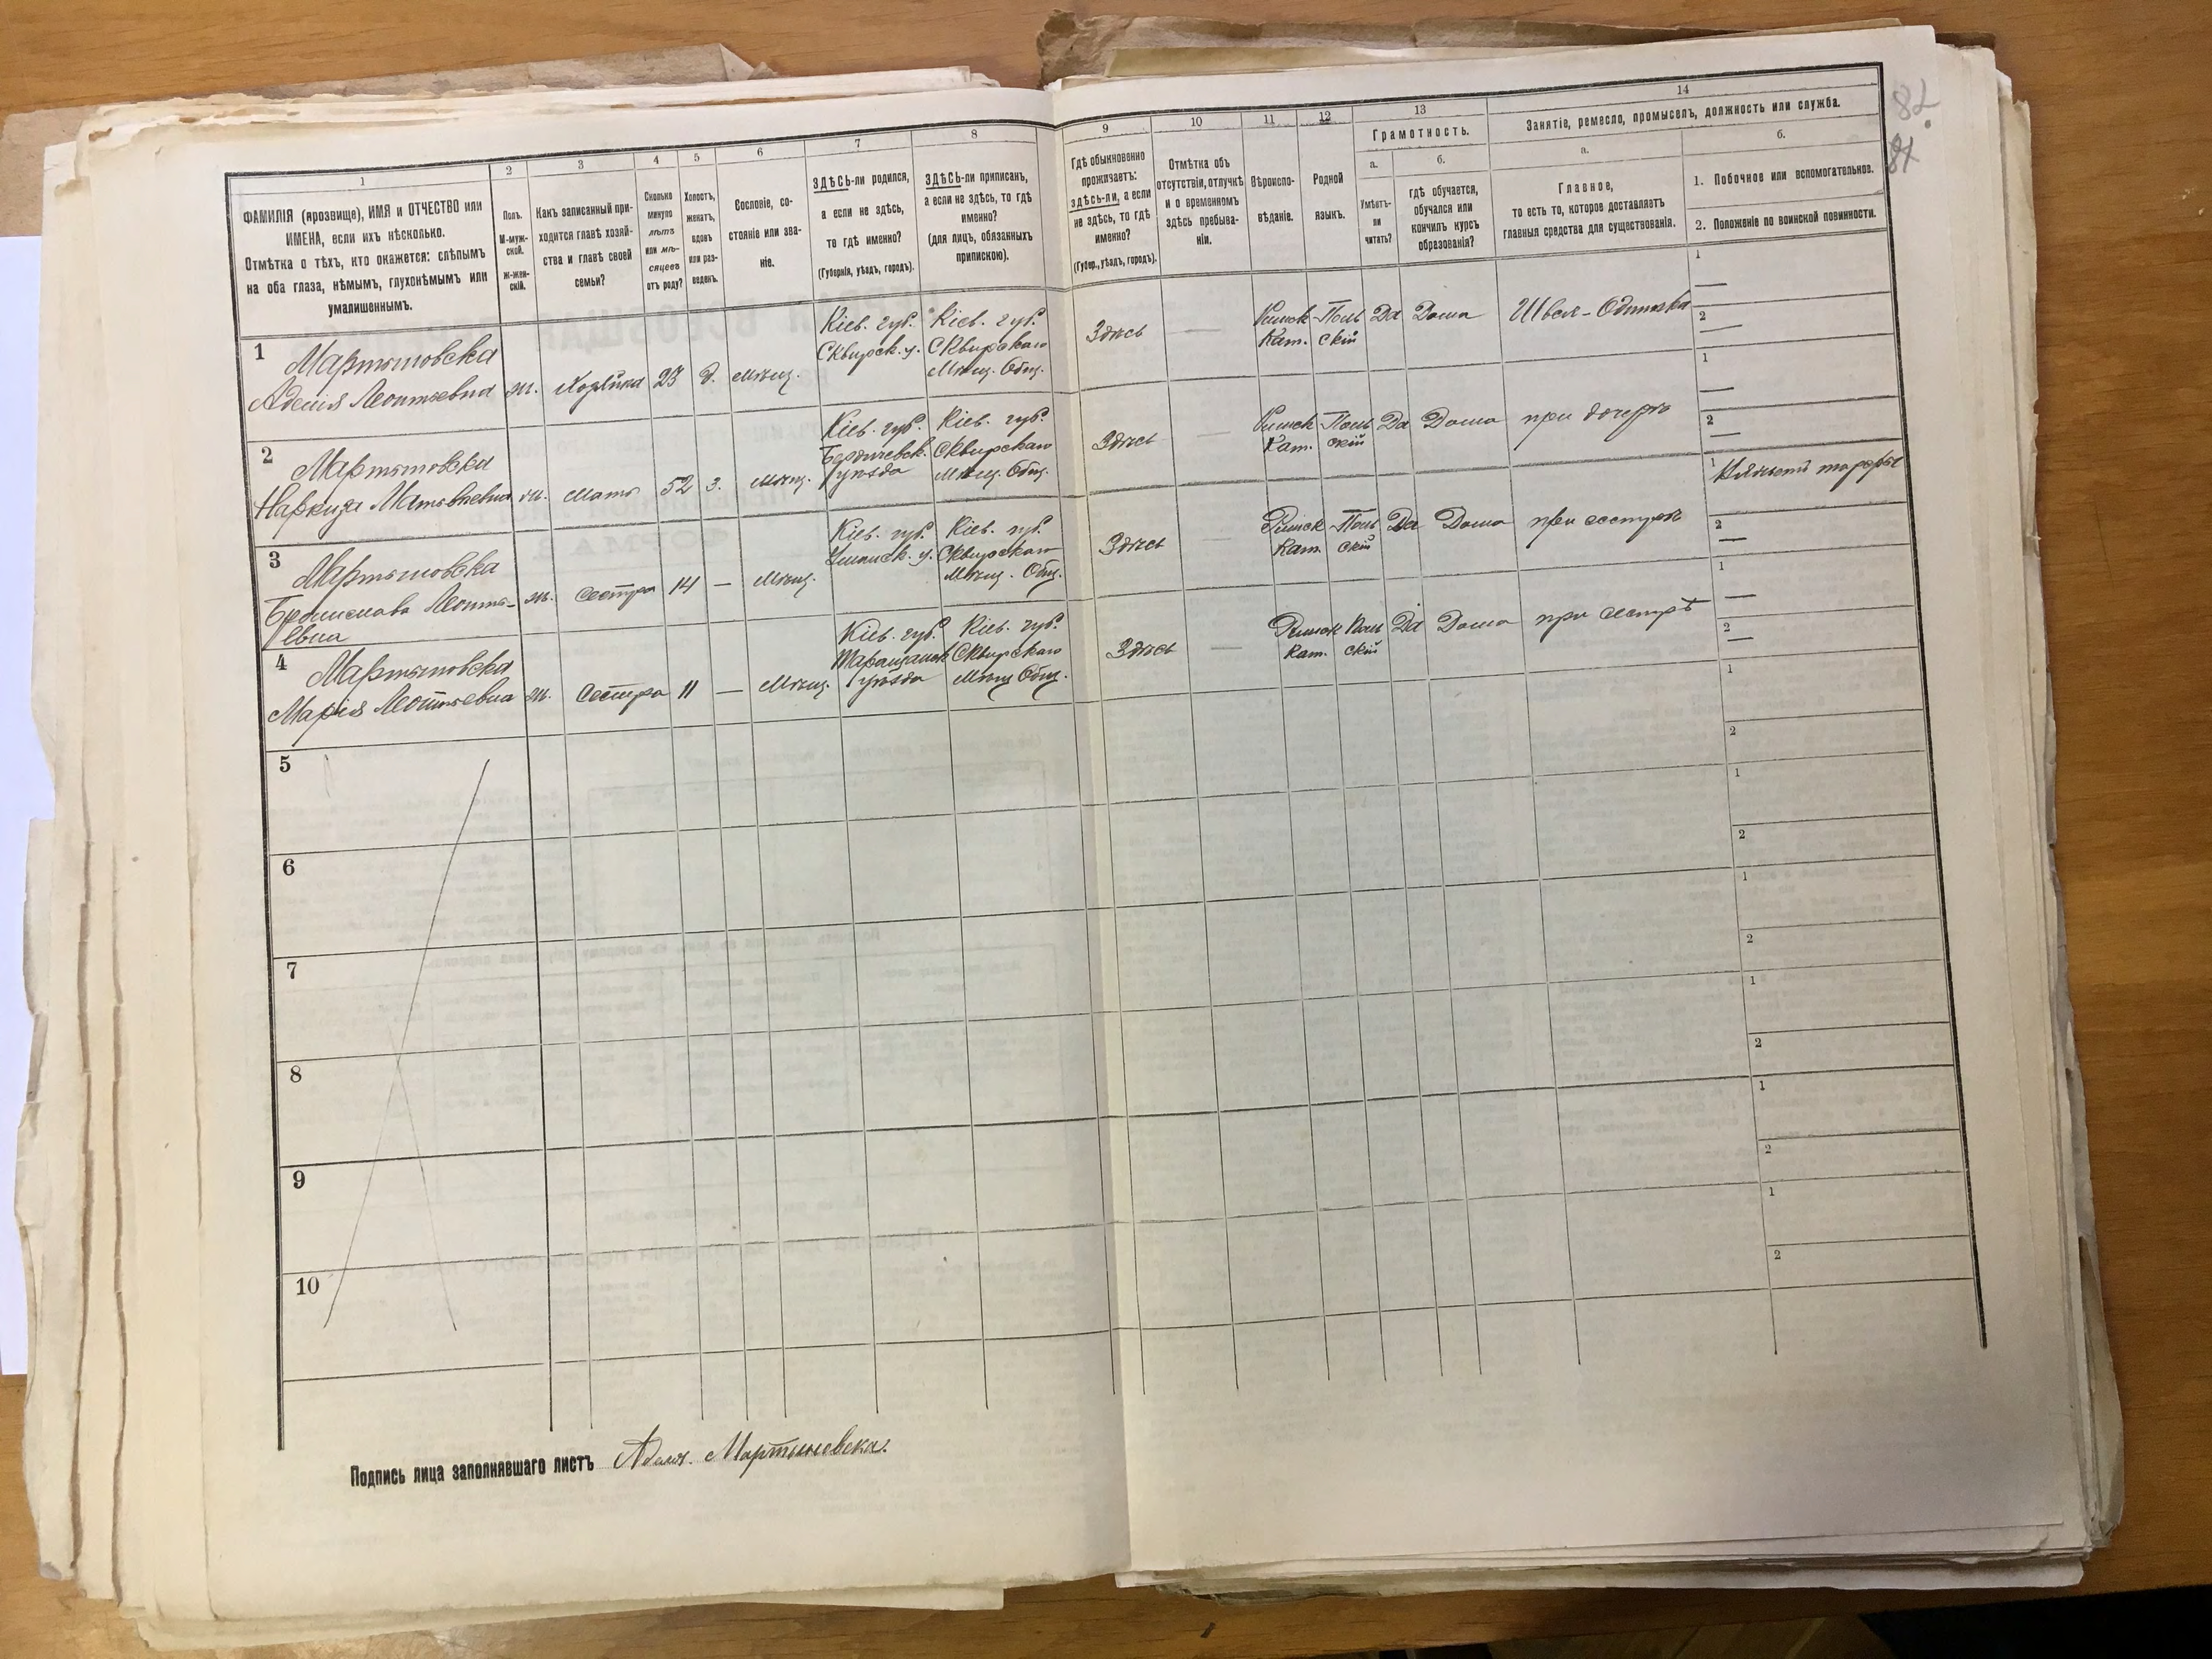 82
81
1
ФАМИЛІЯ (прозвище), ИМЯ и ОТЧЕСТВО или
ИМЕНА, если ихъ нѣсколько.
Отмѣтка о тѣхъ, кто окажется: слѣпымъ
на оба глаза, нѣмымъ, глухонѣмымъ или
умалишеннымъ.
2
Полъ.
М-муж-
ской.
Ж-жен-
скій.
3
Какъ записанный при-
ходится главѣ хозяй-
ства и главѣ своей
семьи?
4
Сколько
минуло
лѣтъ
или мѣ-
сяцевъ
отъ роду?
5
Холостъ,
женатъ,
вдовъ
или раз-
веденъ.
6
Сословіе, со-
стояніе или зва-
ніе.
7
ЗДѢСЬ-ли родился,
а если не здѣсь,
то гдѣ именно?
(Губернія, уѣздъ, городъ).
8
ЗДѢСЬ-ли приписанъ,
а если не здѣсь, то гдѣ
именно?
(для лицъ, обязанныхъ
припискою).
9
Гдѣ обыкновенно
проживаетъ:
здѣсь-ли, а если
не здѣсь, то гдѣ
именно?
(Губер., уѣздъ, городъ).
10
Отмѣтка объ
отсутствіи, отлучкѣ
и о временномъ
здѣсь пребыва-
ніи.
11
Вѣроиспо-
вѣданіе.
12
Родной
языкъ.
13
Грамотность.
а.
Умѣетъ-
ли
читать?
б.
гдѣ обучается,
обучался или
кончилъ курсъ
образованія?
14
Занятіе, ремесло, промыселъ, должность или служба.
а.
Главное,
то есть то, которое доставляетъ
главныя средства для существованія.
б.
1. Побочное или вспомогательное.
2. Положеніе по воинской повинности.
1
Мартыновска
Аделія Леонтьевна
ж.
Хозяйка
23
д.
мѣщ.
Кіев. губ.
Сквирск. у.
Кіев. губ.
Сквирскаго
Мѣщ. Общ.
Здѣсь
—
Римск
Кат.
Поль
скій
Да
Дома
Швея-Одиночка
1
—
2
—
2
Мартыновска
Наркиза Матвѣевна
ж.
Мать
52
з.
мѣщ.
Кіев. губ.
Бердичевск.
уѣзда
Кіев. губ.
Сквирскаго
Мѣщ. Общ.
Здѣсь
—
Римск
Кат.
Поль
скій
Да
Дома
при дочерѣ
1
—
2
—
3
Мартыновска
Бронислава Леонть-
евна
ж.
Сестра
14
—
Мѣщ.
Кіев. губ.
Уманск. у.
Кіев. губ.
Сквирскаго
Мѣщ. Общ.
Здѣсь
—
Римск
Кат.
Поль
скій
Да
Дома
при сестрѣ
1
2
—
4
Мартыновска
Марія Леонтьевна
ж.
Сестра
11
—
Мѣщ.
Кіев. губ.
Таращанск
уѣзда
Кіев. губ.
Сквирскаго
Мѣщ Общ.
Здѣсь
—
Римск
Кат.
Поль
скій
Да
Дома
при сестрѣ
1
—
2
—
5
1
2
6
1
2
7
1
2
8
1
2
9
1
2
10
1
2
Подпись лица заполнявшаго листъ
Мартыновска.